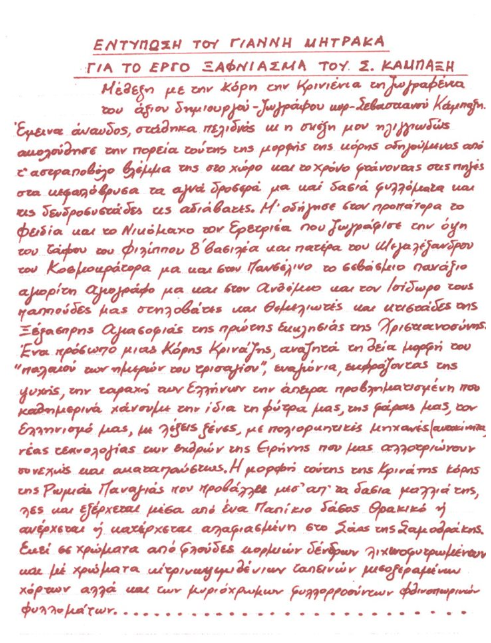 ΕΝΤΥΠΩΣΗ ΤΟΥ ΓΙΑΝΝΗ ΜΗΤΡΑΚΑ
ΓΙΑ ΤΟ ΕΡΓΟ ΞΑΦΝΙΑΣΜΑ ΤΟΥ Σ. ΚΑΜΠΑΞΗ
Μέθεξη με την Κόρη την Κρινένια τη ζωγραφένια
του άξιου δημιουργού-ζωγράφου κυρ-Σεβαστιανού Καμπαξη.
Έμεινα άναυδος, στάθηκα πελιδνός κι η σκέψη μου ιλιγγιωδώς
ακολούθησε την πορεία τούτης της μορφής της κόρης οδηγούμενος από
τ' αστραποβόλο βλέμμα της στο χώρο και το χρόνο φτάνοντας στις πηγές
στα κεφαλόβρυσα τα αγνά δροσερά μα και δασιά φυλλώματα και
τις δενδροσυστάδες τις αδιάβατες. Μ' οδήγησε στον προπάτορα το
Φειδία και το Νικόμαχο τον Ερετριέα που ζωγράφισε την όψη
του τάφου του Φιλίππου Β' βασιλέα και πατέρα του Μεγαλέξανδρου
του Κοσμοκράτορα μα και στον Πανσέληνο το σεβάσμιο πανάξιο
αγιορίτη Αγιογράφο μα και στον Ανθέμιο και τον Ισίδωρο τους
παππούδες μας στηλοβάτες και θεμελιωτές και κτιστάδες της
Ξέχαστρης Αγιασοφιάς της πρώτης εκκλησιάς της Χριστιανοσύνης.
Ένα πρόσωπο μιας Κόρης Κρινάτης, αναζητά τη θεία μορφή του
"παλαιού των ημερών του τρισαγίου", εναγώνια, εκφράζοντας της
ψυχής, την ταραχή των Ελλήνων την άπειρα προβληματισμένη που
καθημερινά χάνουμε την ίδια τη φύτρα μας, της φάρας μας, τον
Ελληνισμό μας, με λέξεις ξένες, με πολιορκητικές μηχανές
νέας τεχνολογίας των εχθρών της Ειρήνης που μας αλλοτριώνουν
συνεχώς και ακαταπαύστως. Η μορφή τούτης της Κρινάτης κόρης
της Ρωμιάς Παναγιάς που προβάλλει μεσ' απ' τα δασιά μαλλιά της,
λες και εξέρχεται μέσα από ένα Παπίκιο δάσος Θρακικό ή
ανέρχεται ή κατέρχεται αλαφιασμένη στο Σάος της Σαμοθράκης.
Εκεί σε χρώματα από φλούδες κορμιών δένδρων
και με χρώματα ταπεινών μισοξεραμένων
χόρτων αλλά και των μυριόχρωμων φυλλορροούντων φθινοπωρινών
φυλλωμάτων. . . . . . . . . . . . . . . . . . . . . . . .